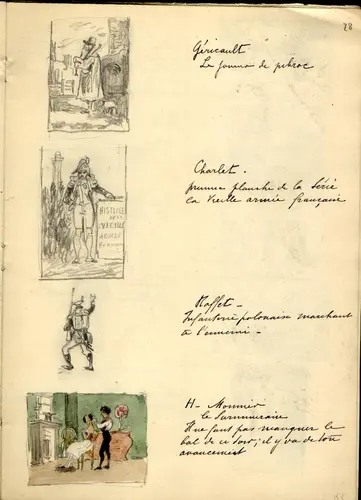 28
Géricault
Le joueur de pibroc
Charlet.
première planche de la Série
la Vieille armée française
HISTOIRE
DE LA
VIEILLE
ARMÉE
Raffet -
Infanterie polonaise marchant
à l'ennemi -
H- Monnier
le Surnuméraire
Il ne faut pas manquer le
bal de ce soir; il y va de ton
avancement